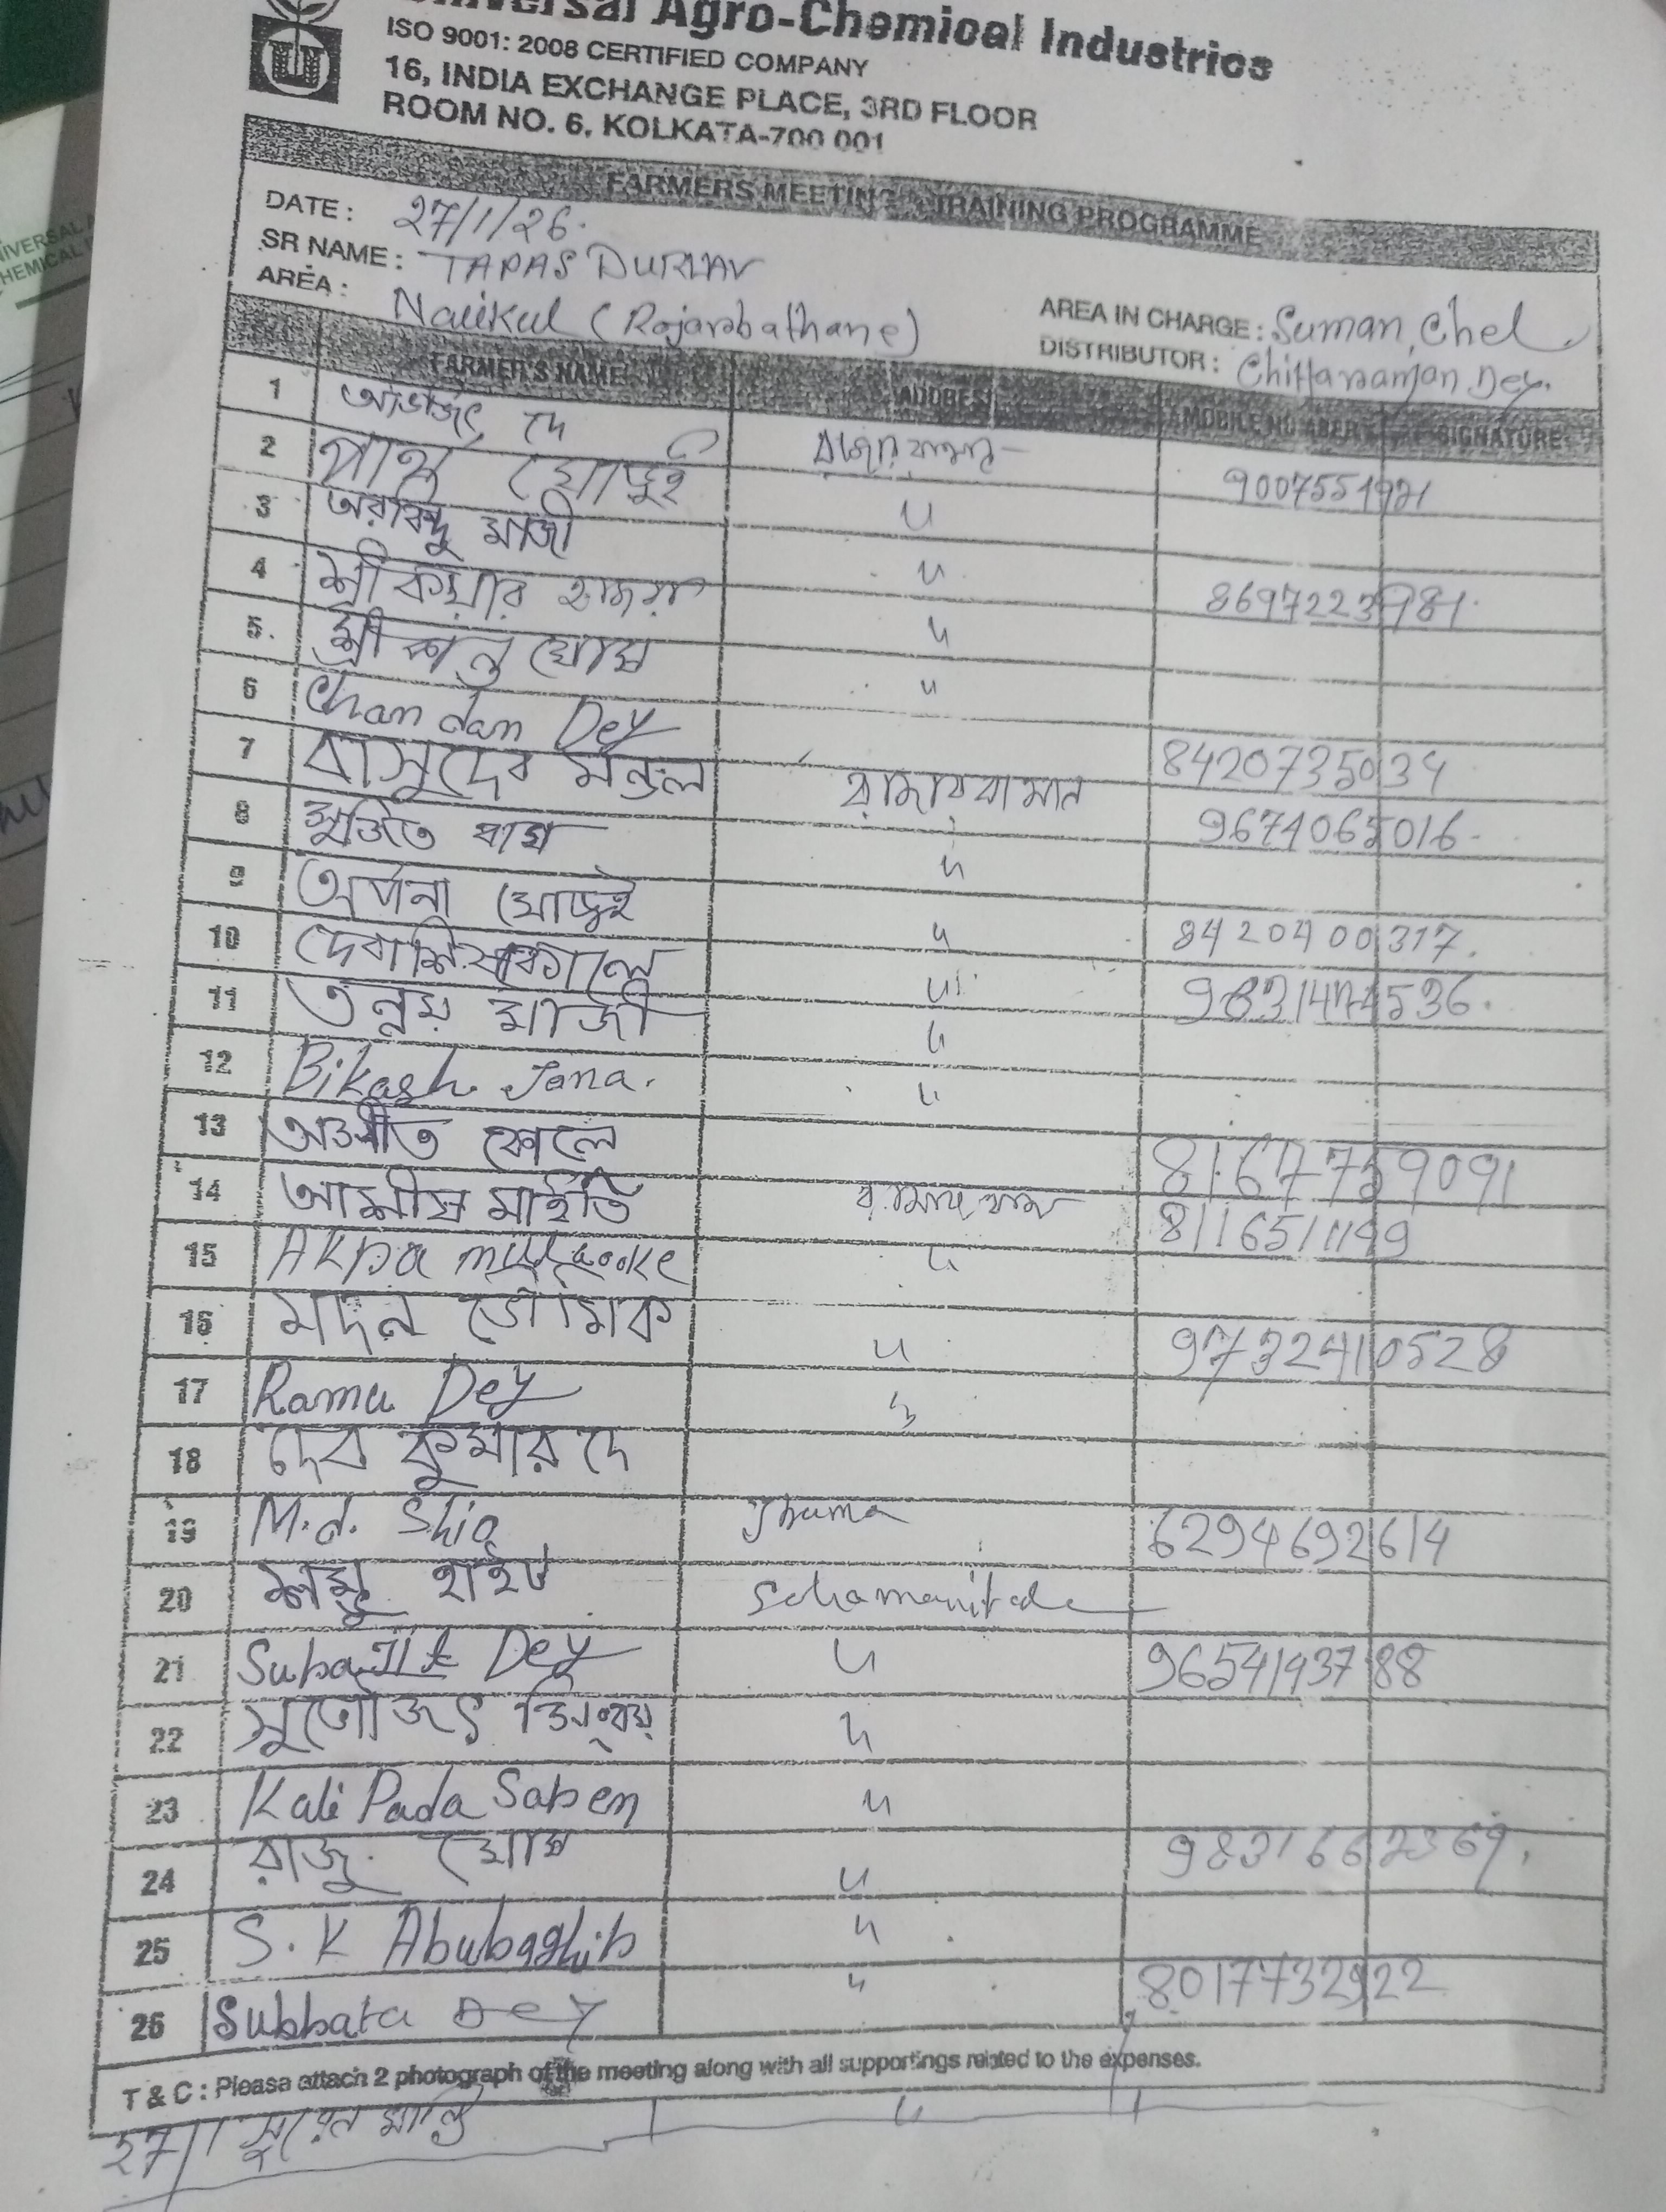 Universal Agro-Chemical Industries
ISO 9001: 2008 CERTIFIED COMPANY
16, INDIA EXCHANGE PLACE, 3RD FLOOR
ROOM NO. 6, KOLKATA-700 001
FARMERS MEETING TRAINING PROGRAMME
DATE: 27/1/26.
SR NAME: TAPAS
AREA: Nalikul (Rajarbathane)
AREA IN CHARGE: Suman Chel
DISTRIBUTOR: Chittaranjan Dey.
FARMER'S NAME ADDRESS MOBILE NUMBER SIGNATURE
1 অভিজিৎ দে 9007551921
2 পার্থ ঘোড়ুই 〃
3 অরবিন্দু মাজী 〃 8697223981.
4 শ্রীকুমার হাজরা 〃
5. শ্রীকান্ত ঘোষ 〃
6 Chandan Dey 8420735034
7 বাসুদেব মন্ডল 9674065016.
8 সুজিত বাগ 〃
9 অর্পনা ঘোড়ুই 〃 8420400317.
10 〃
11 তন্ময় মাজী 〃
12 Bikash Jana. 〃
13 8167759091
14 আশীষ মাইতি
15 〃
16 মদন ভৌমিক 〃 9732410528
17 Rama Dey 〃
18 দেব কুমার দে
19 M.d. Jhuma 6294692614
20 শম্ভু হাইত
21 Subajit Dey 〃 9654193788
22 〃
23 Kali Pada Saben 〃
24 রাজু ঘোষ 〃 9831662369.
25 S.K 〃
26 Subbata Dey 〃 8017732922
T & C : Please attach 2 photograph of the meeting along with all supportings related to the expenses.
27/ 〃